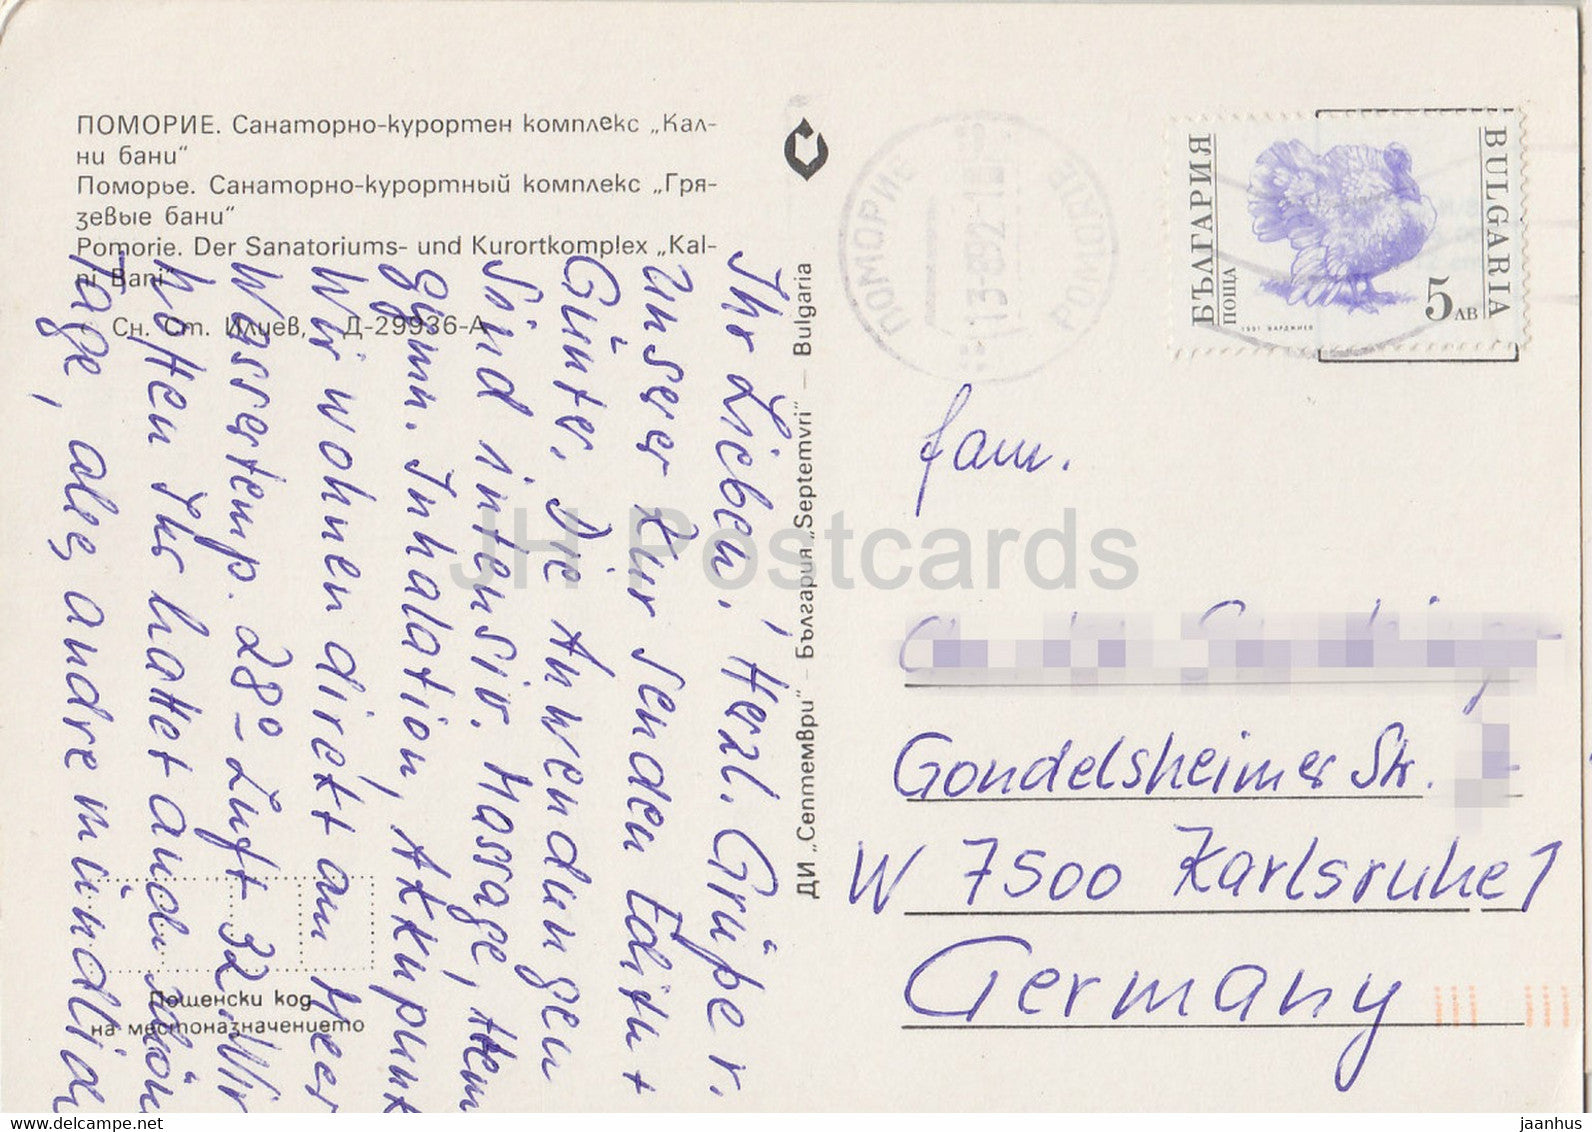 ПОМОРИЕ. Санаторно-курортен комплекс „Кал-
ни бани“
Поморье. Санаторно-курортный комплекс „Гря-
зевые бани“
Pomorie. Der Sanatoriums- und Kurortkomplex „Kal-
ni Bani“
Сн. Ст. Илиев, Д-29936-А
Ihr Lieben, Herzl. Grüße v.
unser Kur senden Edith +
Günter. Die Anwendungen
sind intensiv. Massage, Hem
gymn. Inhalation, Akkupunkt
Wir wohnen direkt am Meer
Wassertemp. 28° - Luft 32. Wir
hoffen Ihr hattet auch schön
Tage, alles andre mündlich
Пощенски код
на местоназначението
ДИ „Септември“ – България „Septemvri“ – Bulgaria
ПОМОРИЕ
POMORIE
БЪЛГАРИЯ
ПОЩА
BULGARIA
5 ЛВ
1991 ВАРДЖИЕВ
Fam.
Gondelsheimer Str.
W 7500 Karlsruhe 1
Germany
JH Postcards
delcampe.net
jaanhus